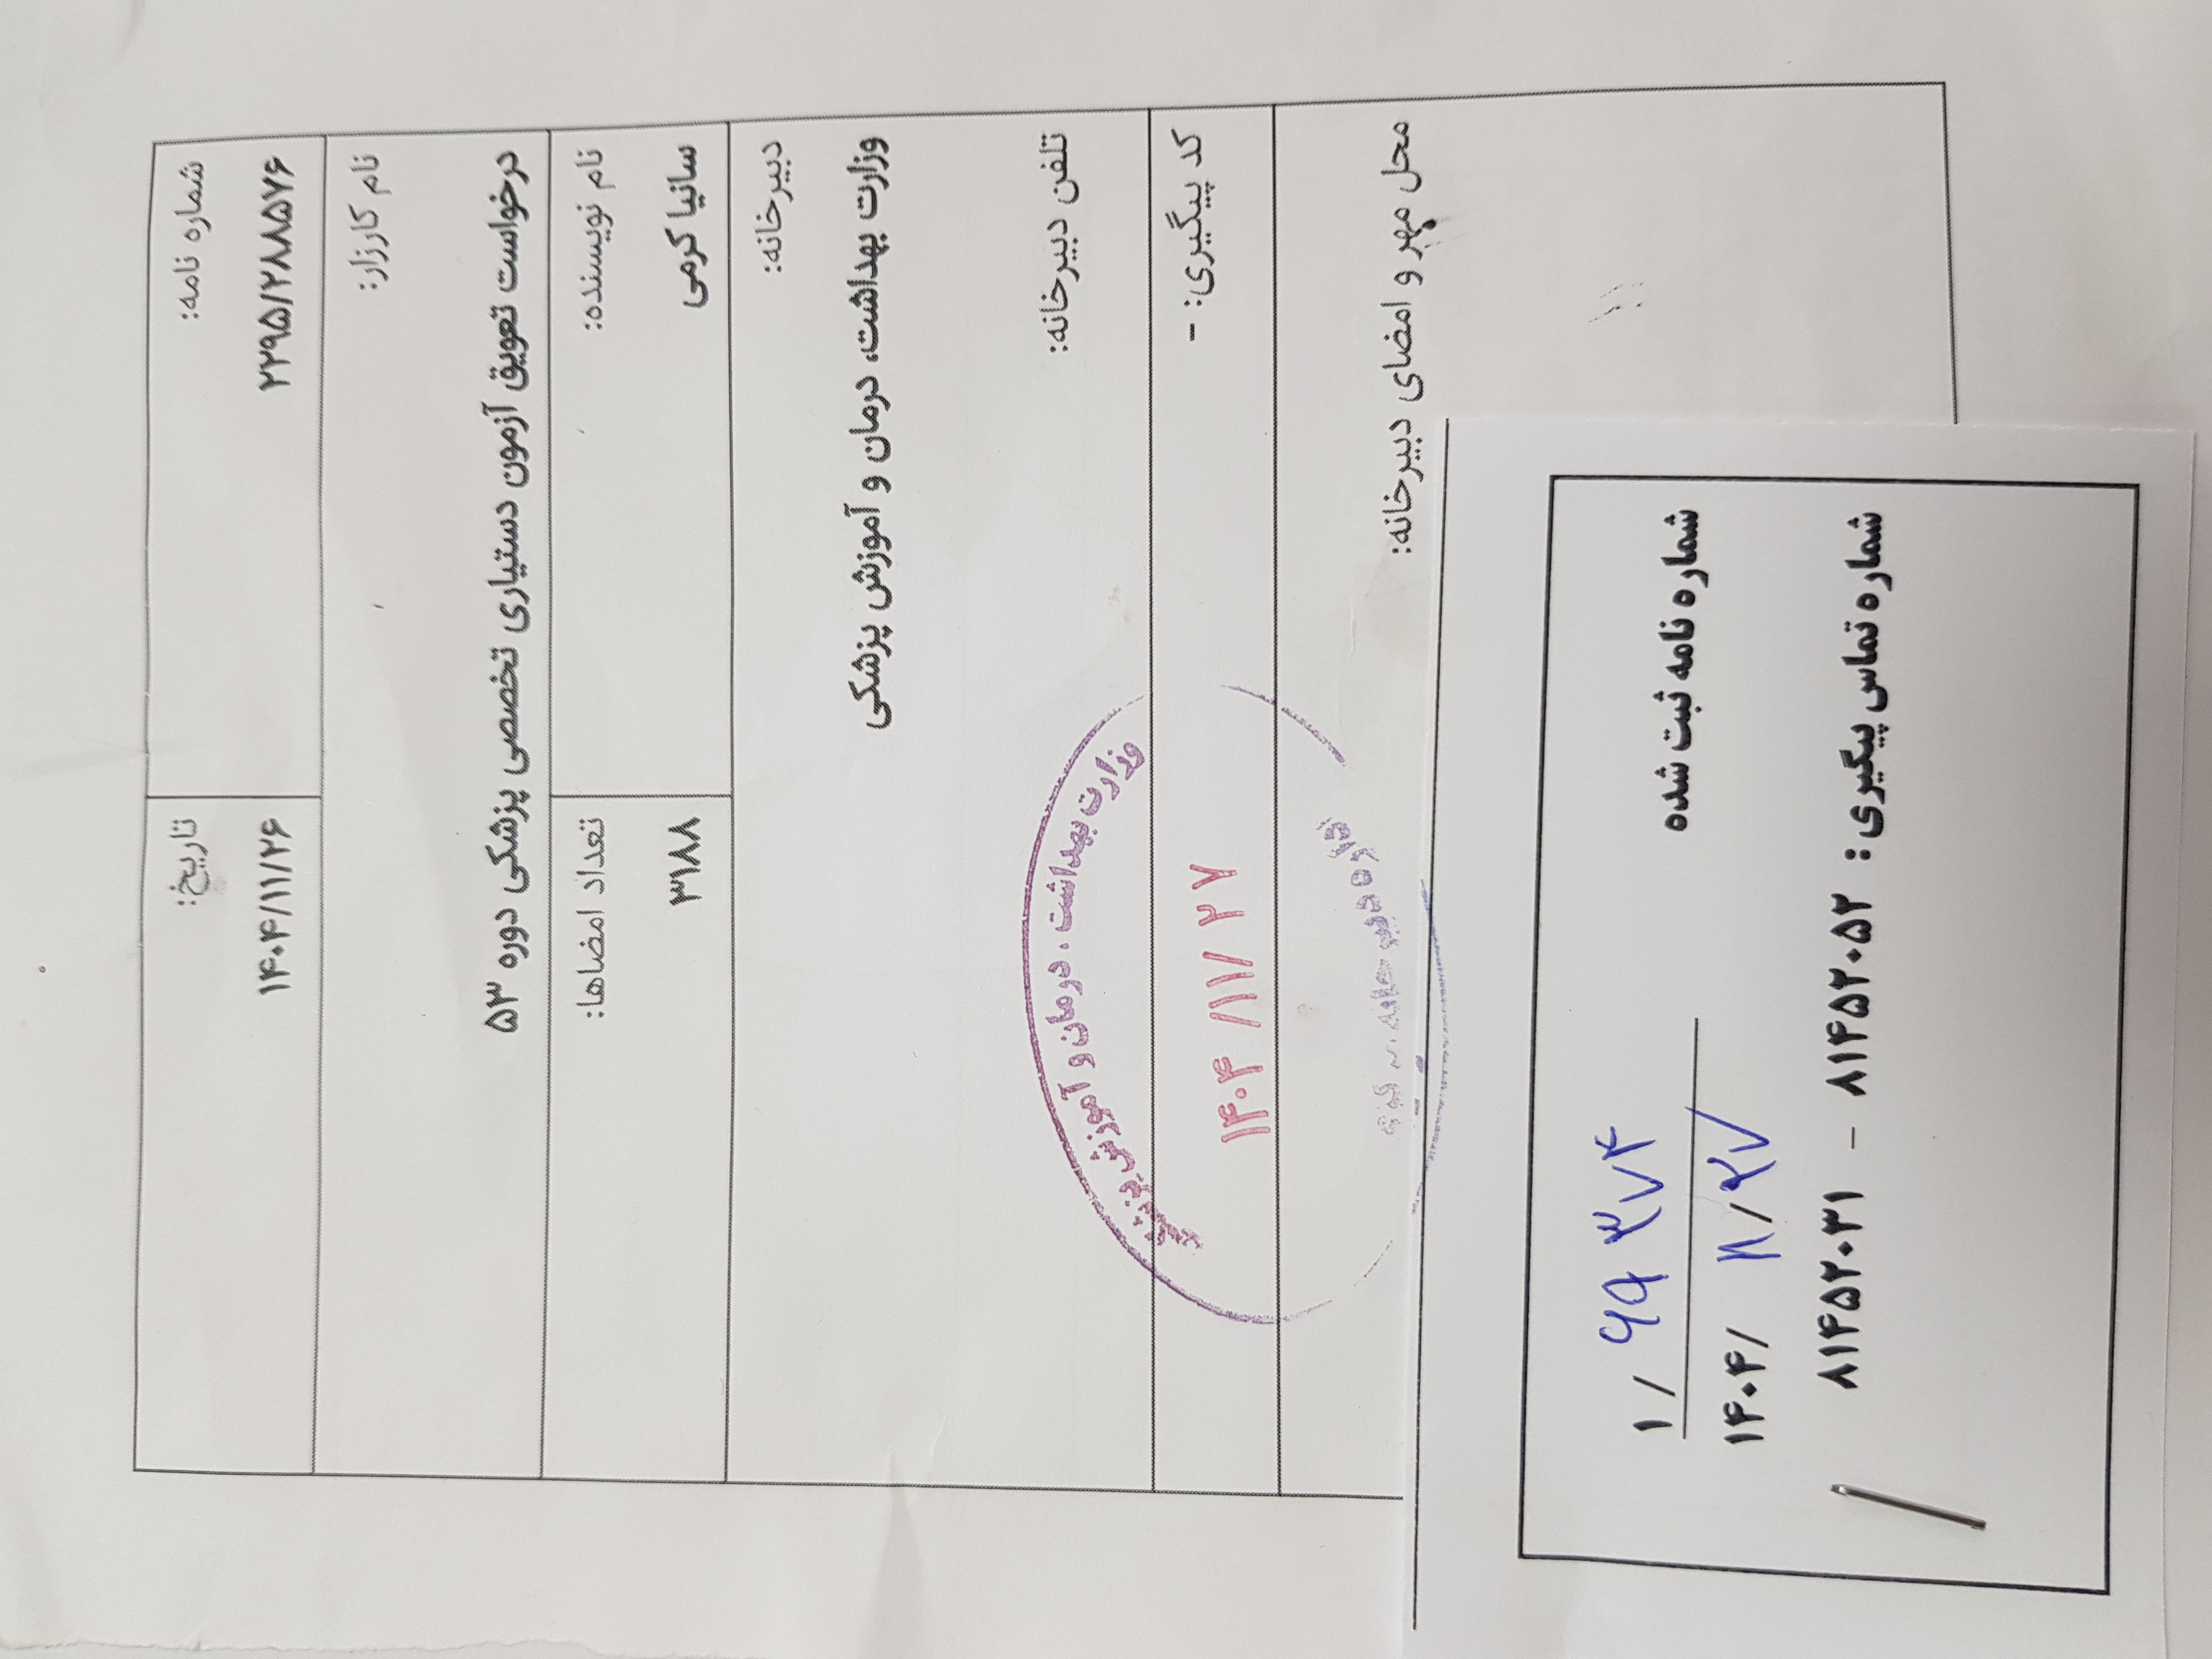 شماره نامه:
۲۲۹۵/۲۸۸۸۵۷۶
تاریخ:
۱۴۰۴/۱۱/۲۶
نام کارزار:
درخواست تعویق آزمون دستیاری تخصصی پزشکی دوره ۵۳
نام نویسنده:
سانیا کرمی
تعداد امضاها:
۳۱۸۸
دبیرخانه:
وزارت بهداشت، درمان و آموزش پزشکی
تلفن دبیرخانه:
کد پیگیری: -
محل مهر و امضای دبیرخانه:
وزارت بهداشت، درمان و آموزش پزشکی
۱۴۰۴/۱۱/۲۷
شماره نامه ثبت شده
۱/ ۶۹۳۷۴
۱۴۰۴/ ۱۱/۲۷
شماره تماس پیگیری: ۸۱۴۵۲۰۵۲ - ۸۱۴۵۲۰۳۱